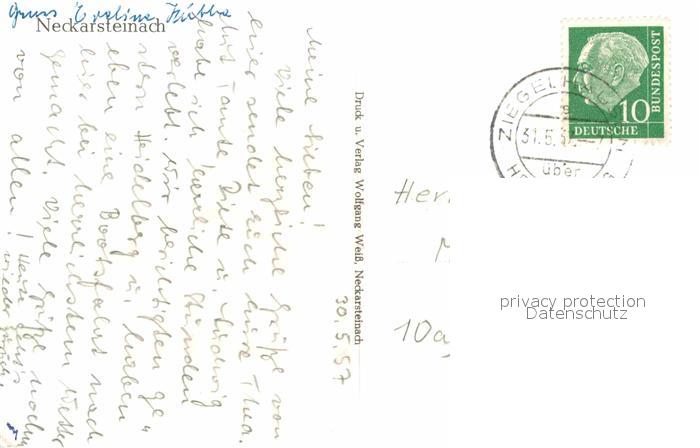 Gruss Evelina
Neckarsteinach
Meine Lieben!
Viele herzliche Grüße von
einer sendet euch eure Thea.
Mit Tante Dina u. Ludwig
habe ich herrliche Stunden
verlebt. Wir besichtigten ge=
stern Heidelberg u. haben
eben eine Bootsfahrt nach
hier bei herrlichstem Wetter
gemacht. Viele Grüße noch
von allen!
Druck u. Verlag Wolfgang Weiß, Neckarsteinach
30.5.57
BUNDESPOST
10
DEUTSCHE
ZIEGELHAUSEN
31.5.57
über
Her
M
10a
privacy protection
Datenschutz